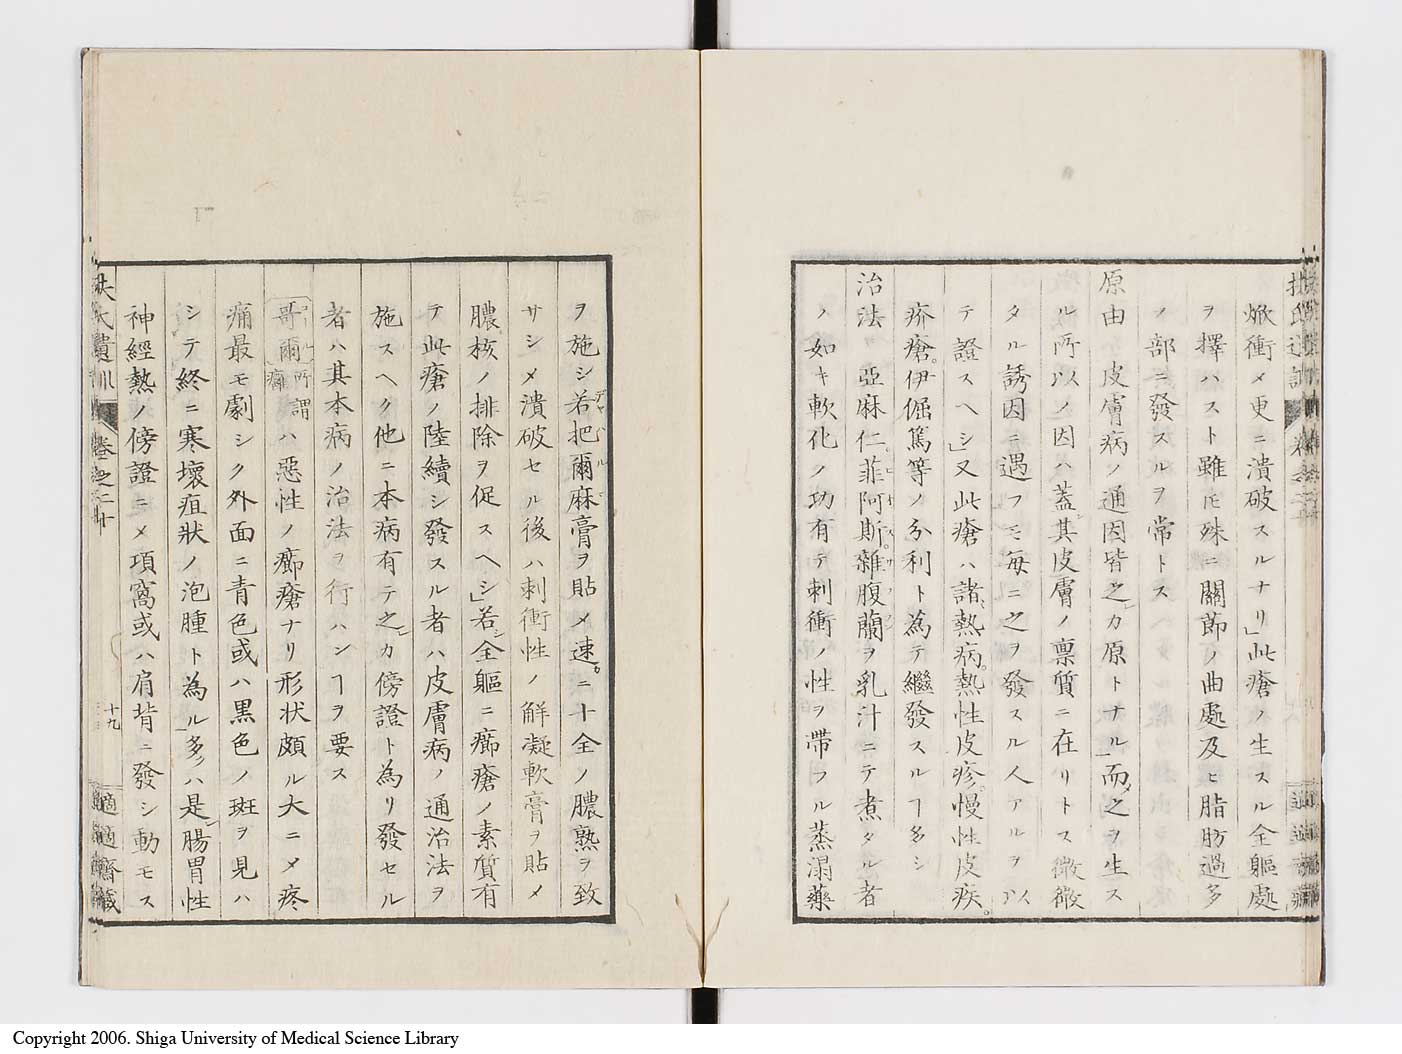 焮衝シ更ニ潰破スルナリ」此瘡ノ生スル全軀處
ヲ擇ハスト雖𪜈殊ニ關節ノ曲處及ヒ脂肪過多
ノ部ニ發スルヲ常トス
原由 皮膚病ノ通因皆之カ原トナル」而乄之ヲ生ス
ル所以ノ因ハ蓋シ其皮膚ノ禀質ニ在リトス微微
タル誘因ニ遇フモ每ニ之ヲ發スル人アルヲ以
テ證スヘシ」又此瘡ハ諸熱病。熱性皮疹。慢性皮疾。
疥瘡。伊倔篤等ノ分利ト為テ繼發スルヿ多シ
治法 亞麻仁。菲阿斯。雜腹蘭ヲ乳汁ニテ煮タル者
ノ如キ軟化ノ功有テ刺衝ノ性ヲ帶フル蒸溻藥
ヲ施シ若クハ把爾麻膏ヲ貼乄速ニ十全ノ膿熟ヲ致
サシメ潰破セル後ハ刺衝性ノ解凝軟膏ヲ貼乄
膿核ノ排除ヲ促スヘシ」若シ全軀ニ癤瘡ノ素質有
テ此瘡ノ陸續シ發スル者ハ皮膚病ノ通治法ヲ
施スヘク他ニ本病有テ之カ傍證ト為リ發セル
者ハ其本病ノ治法ヲ行ハンヿヲ要ス
哥爾所謂癰ハ惡性ノ癤瘡ナリ形狀頗ル大ニ乄疼
痛最モ劇シク外面ニ青色或ハ黑色ノ斑ヲ見ハ
シテ終ニ寒壞疽狀ノ泡腫ト為ル多クハ是レ腸胃性
神經熱ノ傍證ニ乄項窩或ハ肩背ニ發シ動モス
扶氏遺訓 卷之二十 十九 適適齋藏